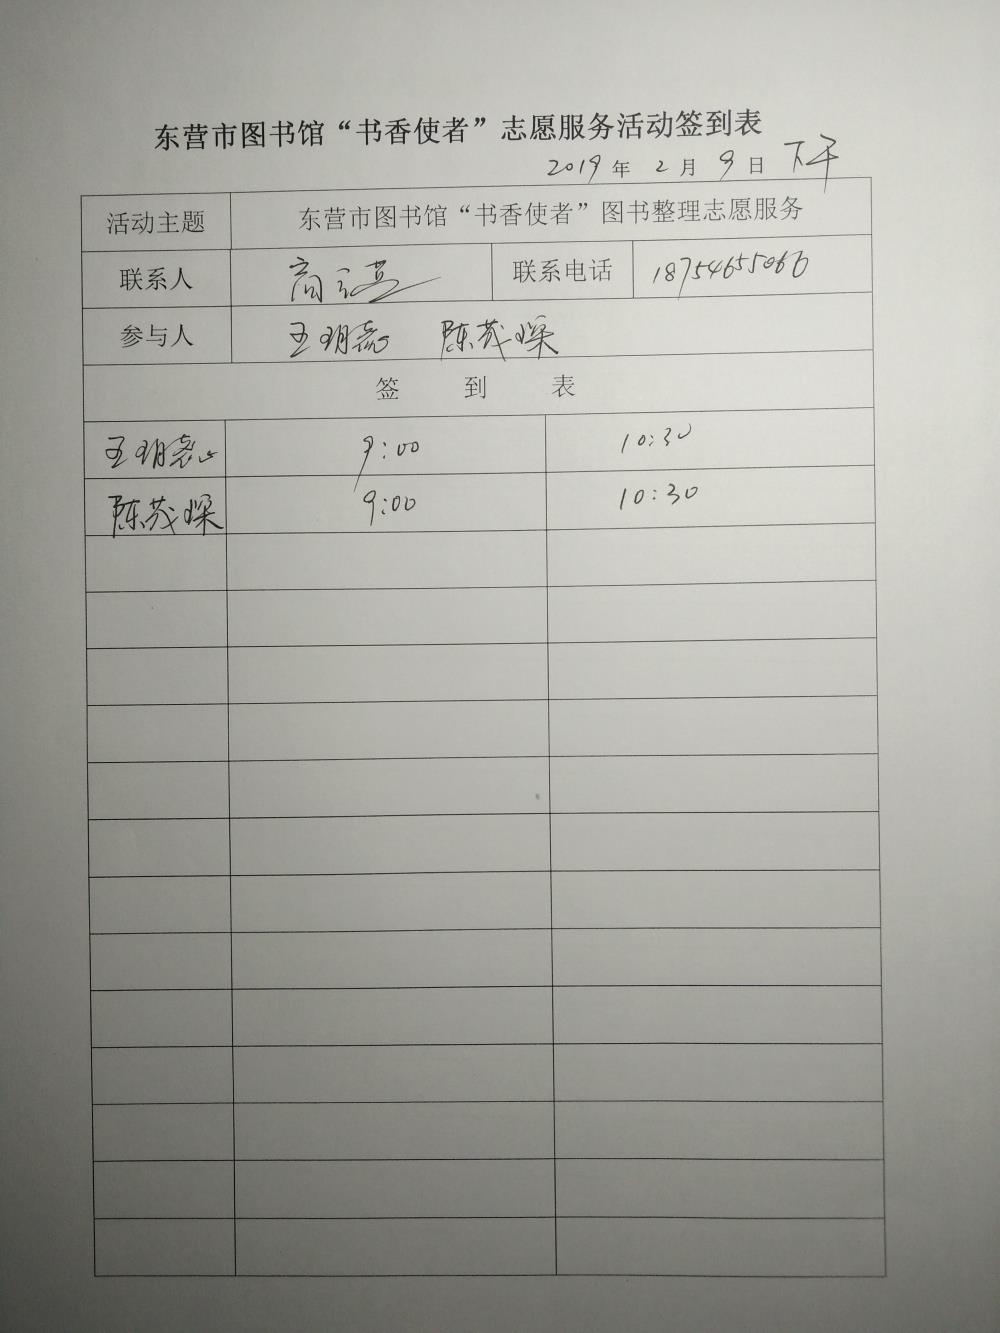 东营市图书馆“书香使者”志愿服务活动签到表
2019年2月9日 下午
活动主题 东营市图书馆“书香使者”图书整理志愿服务
联系人 商 联系电话 18754655066
参与人 王玥 陈茂琛
签到表
王玥 9:00 10:30
陈茂琛 9:00 10:30